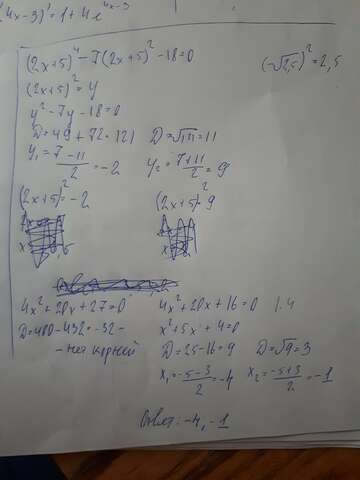 (4x-3)' = 1 + 4e^(4x-3)
(2x+5)^4 - 7(2x+5)^2 - 18 = 0
(-√2,5)^2 = 2,5
(2x+5)^2 = y
y^2 - 7y - 18 = 0
D = 49 + 72 = 121 D = √121 = 11
y₁ = (7-11)/2 = -2 y₂ = (7+11)/2 = 9
(2x+5)^2 = -2 (2x+5)^2 = 9
4x^2 + 20x + 27 = 0 4x^2 + 20x + 16 = 0 | : 4
D = 400 - 432 = -32 - x^2 + 5x + 4 = 0
- нет корней D = 25 - 16 = 9 D = √9 = 3
x₁ = (-5-3)/2 = -4 x₂ = (-5+3)/2 = -1
Ответ: -4, -1